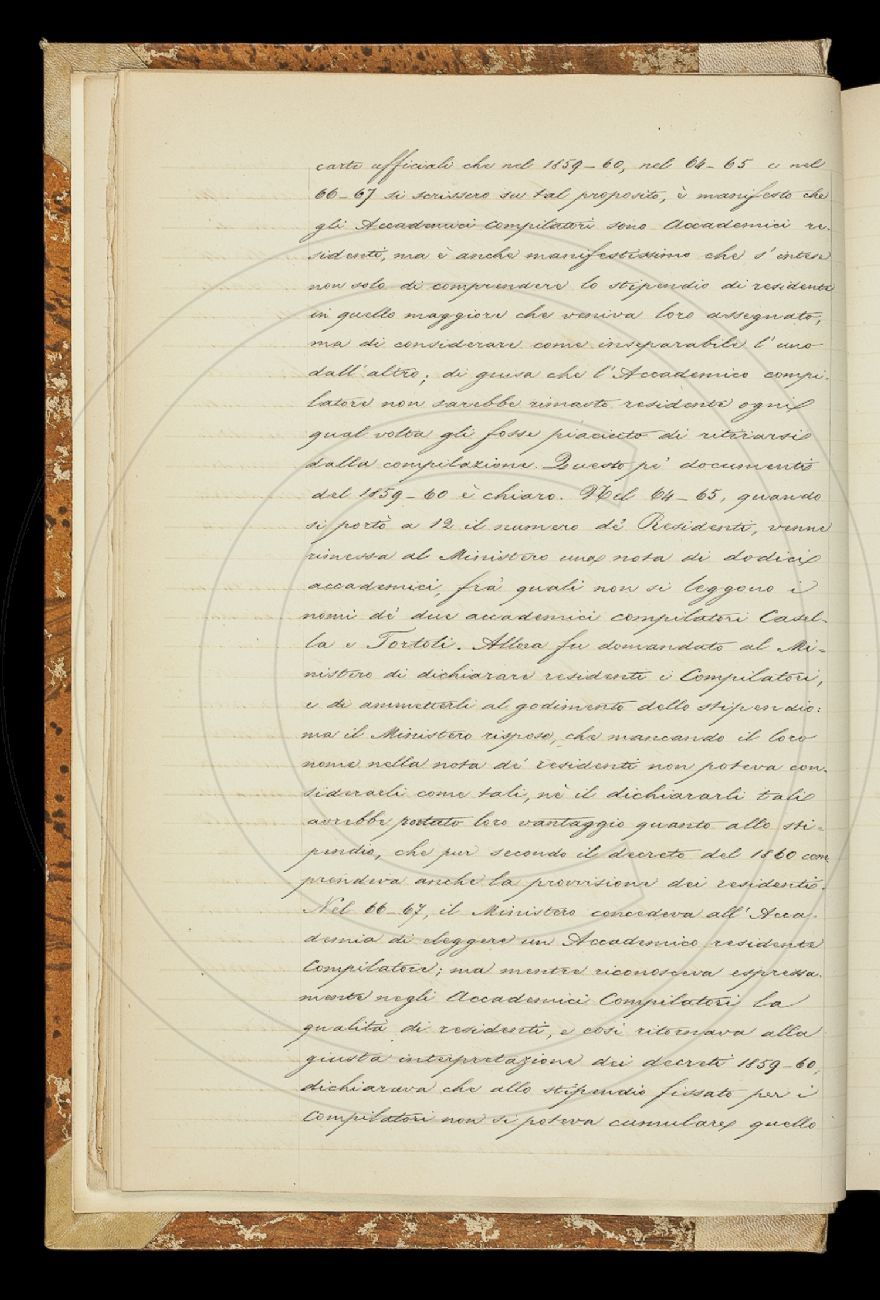 carte officiali che nel 1859-60, nel 64-65 e nel
66-67 si scrissero su tal proposito, è manifesto che
gli Accademici Compilatori sono Accademici re-
sidenti, ma è anche manifestissimo che s'intese
non solo di comprendere lo stipendio di residente
in quello maggiore che veniva loro assegnato,
ma di considerare come inseparabile l'uno
dall'altro; di guisa che l'Accademico compi-
latore non sarebbe rimasto residente ogni
qual volta gli fosse piaciuto di ritirarsi
dalla compilazione. Questo pe' documenti
del 1859-60 è chiaro. Nel 64-65, quando
si portò a 12 il numero de' Residenti, venne
rimessa al Ministero una nota di dodici
accademici, fra' quali non si leggono i
nomi de' due accademici compilatori Casel-
la e Tortoli. Allora fu domandato al Mi-
nistero di dichiarare residenti i Compilatori,
e di ammetterli al godimento dello stipendio:
ma il Ministero rispose, che mancando il loro
nome nella nota de' residenti non poteva con-
siderarli come tali, nè il dichiararli tali
avrebbe portato loro vantaggio quanto allo sti-
pendio, che pur secondo il decreto del 1860 com
prendeva anche la provvisione dei residenti.
Nel 66-67, il Ministero concedeva all'Acca-
demia di eleggere un Accademico residente
Compilatore; ma mentre riconosceva espressa-
mente negli Accademici Compilatori la
qualità di residenti, e così ritornava alla
giusta interpretazione dei decreti 1859-60,
dichiarava che allo stipendio fissato per i
Compilatori non si poteva cumulare quello